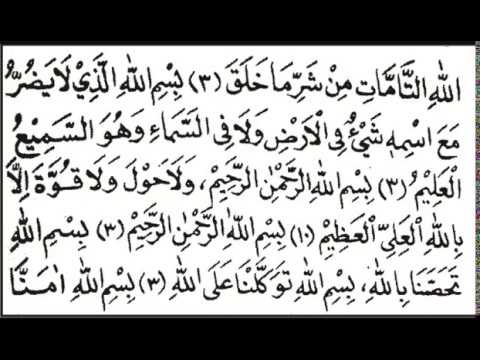 اللهِ التَّامَّاتِ مِنْ شَرِّمَا خَلَقَ (٣) بِسْمِ اللهِ الَّذِيْ لَا يَضُرُّ
مَعَ اسْمِهٖ شَيْءٌ فِى الْاَرْضِ وَلَا فِى السَّمَاءِ وَهُوَ السَّمِيْعُ
الْعَلِيْمُ (٣) بِسْمِ اللهِ الرَّحْمٰنِ الرَّحِيْمِ، وَلَا حَوْلَ وَلَا قُوَّةَ اِلَّا
بِاللهِ الْعَلِيِّ الْعَظِيْمِ (١٠) بِسْمِ اللهِ الرَّحْمٰنِ الرَّحِيْمِ (٣) بِسْمِ اللهِ
تَحَصَّنَا بِاللهِ، بِسْمِ اللهِ تَوَكَّلْنَا عَلَى اللهِ (٣) بِسْمِ اللهِ اٰمَنَّا